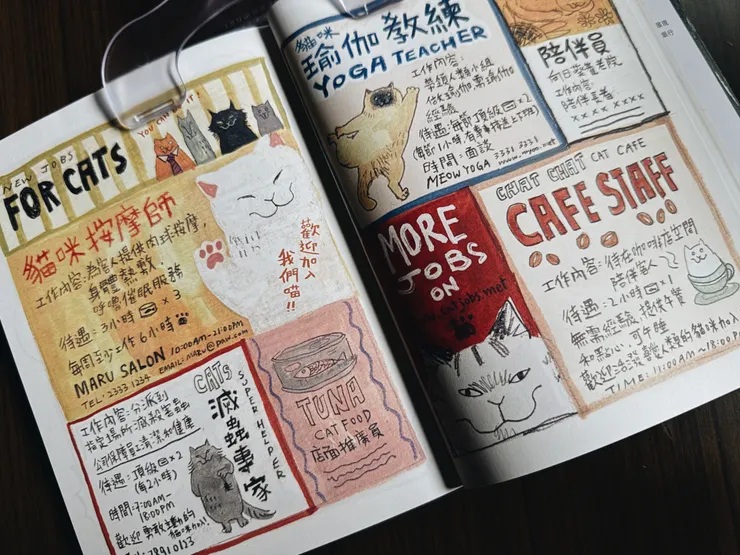 NEW JOBS
FOR CATS
YOU CAN DO IT!
貓咪按摩師
工作內容:為客人提供肉球按摩,
身體熱敷,
呼嚕催眠服務
待遇:3小時 × 3
每周至少工作6小時
MARU SALON 10:00AM-21:00PM
TEL: 2333 1234 EMAIL: MARU@PAW.COM
歡迎加入
我們喵!!
CATS
SUPER HELPER
滅蟲專家
工作內容:分派到
指定場所滅殺害蟲
公司保障員工清潔和健康
待遇:頂級 ×2
(每2小時)
時間:7:00AM-
18:00PM
歡迎勇敢主動的
貓咪加入!
28910123
TUNA
CAT FOOD
店面推廣員
貓咪
瑜伽教練
YOGA TEACHER
工作內容:
帶領人類小組
做瑜伽
經驗
待遇:每節頂級 ×2
(每節1小時,有專車接送上下班)
時間:面談
MEOW YOGA 3331 2331
陪伴員
向日葵賣老院
工作內容:
陪伴長者
×× ×× ××××
MORE
JOBS
ON
www.catjobs.met
CHAT CHAT CAT CAFE
CAFE STAFF
工作內容:待在咖啡店空間
陪伴客人~
待遇:2小時 ×1
無需經驗,提供午餐
和點心,可午睡
歡迎治癒人類的貓咪加入
TIME: 11:00AM-18:00PM
旅行